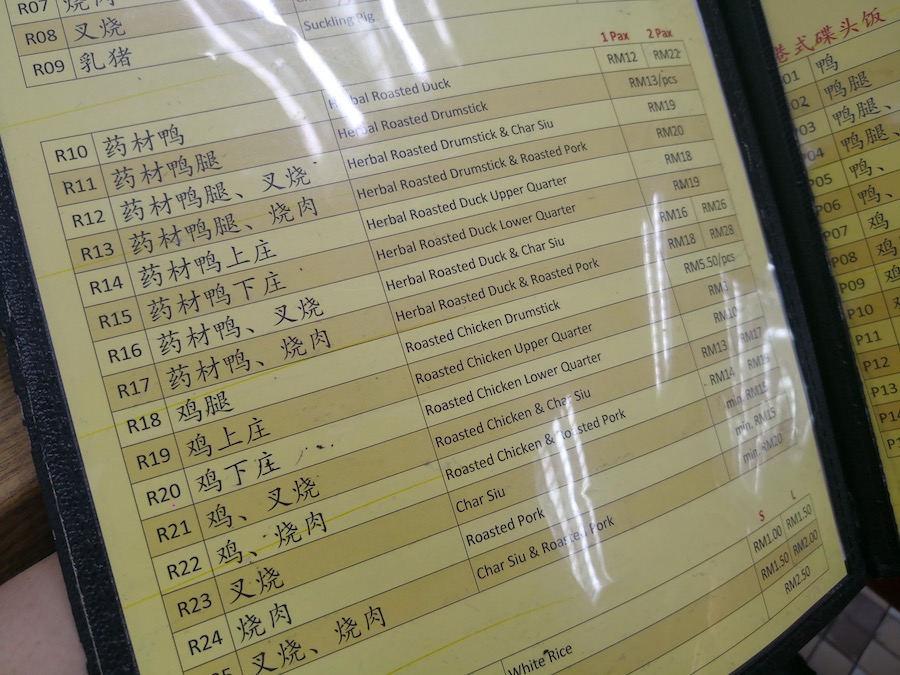 R07 烧肉
R08 叉烧
R09 乳猪 Suckling Pig
1 Pax 2 Pax
R10 药材鸭 Herbal Roasted Duck RM12 RM22
R11 药材鸭腿 Herbal Roasted Drumstick RM13/pcs
R12 药材鸭腿、叉烧 Herbal Roasted Drumstick & Char Siu RM19
R13 药材鸭腿、烧肉 Herbal Roasted Drumstick & Roasted Pork RM20
R14 药材鸭上庄 Herbal Roasted Duck Upper Quarter RM18
R15 药材鸭下庄 Herbal Roasted Duck Lower Quarter RM19
R16 药材鸭、叉烧 Herbal Roasted Duck & Char Siu RM16 RM26
R17 药材鸭、烧肉 Herbal Roasted Duck & Roasted Pork RM18 RM28
R18 鸡腿 Roasted Chicken Drumstick RM5.50/pcs
R19 鸡上庄 Roasted Chicken Upper Quarter
R20 鸡下庄 Roasted Chicken Lower Quarter RM10
R21 鸡、叉烧 Roasted Chicken & Char Siu RM13 RM17
R22 鸡、烧肉 Roasted Chicken & Roasted Pork RM14
R23 叉烧 Char Siu min. RM15
R24 烧肉 Roasted Pork min. RM15
叉烧、烧肉 Char Siu & Roasted Pork min. RM20
S L
White Rice RM1.00 RM1.50
RM1.50 RM2.00
RM2.50
港式碟头饭
01 鸭
02 鸭腿
P03 鸭腿、
P04 鸭腿、
P05 鸭、
P06 鸭、
P07 鸡
P08 鸡
P09 鸡
P10
P11
P12
P13
P14